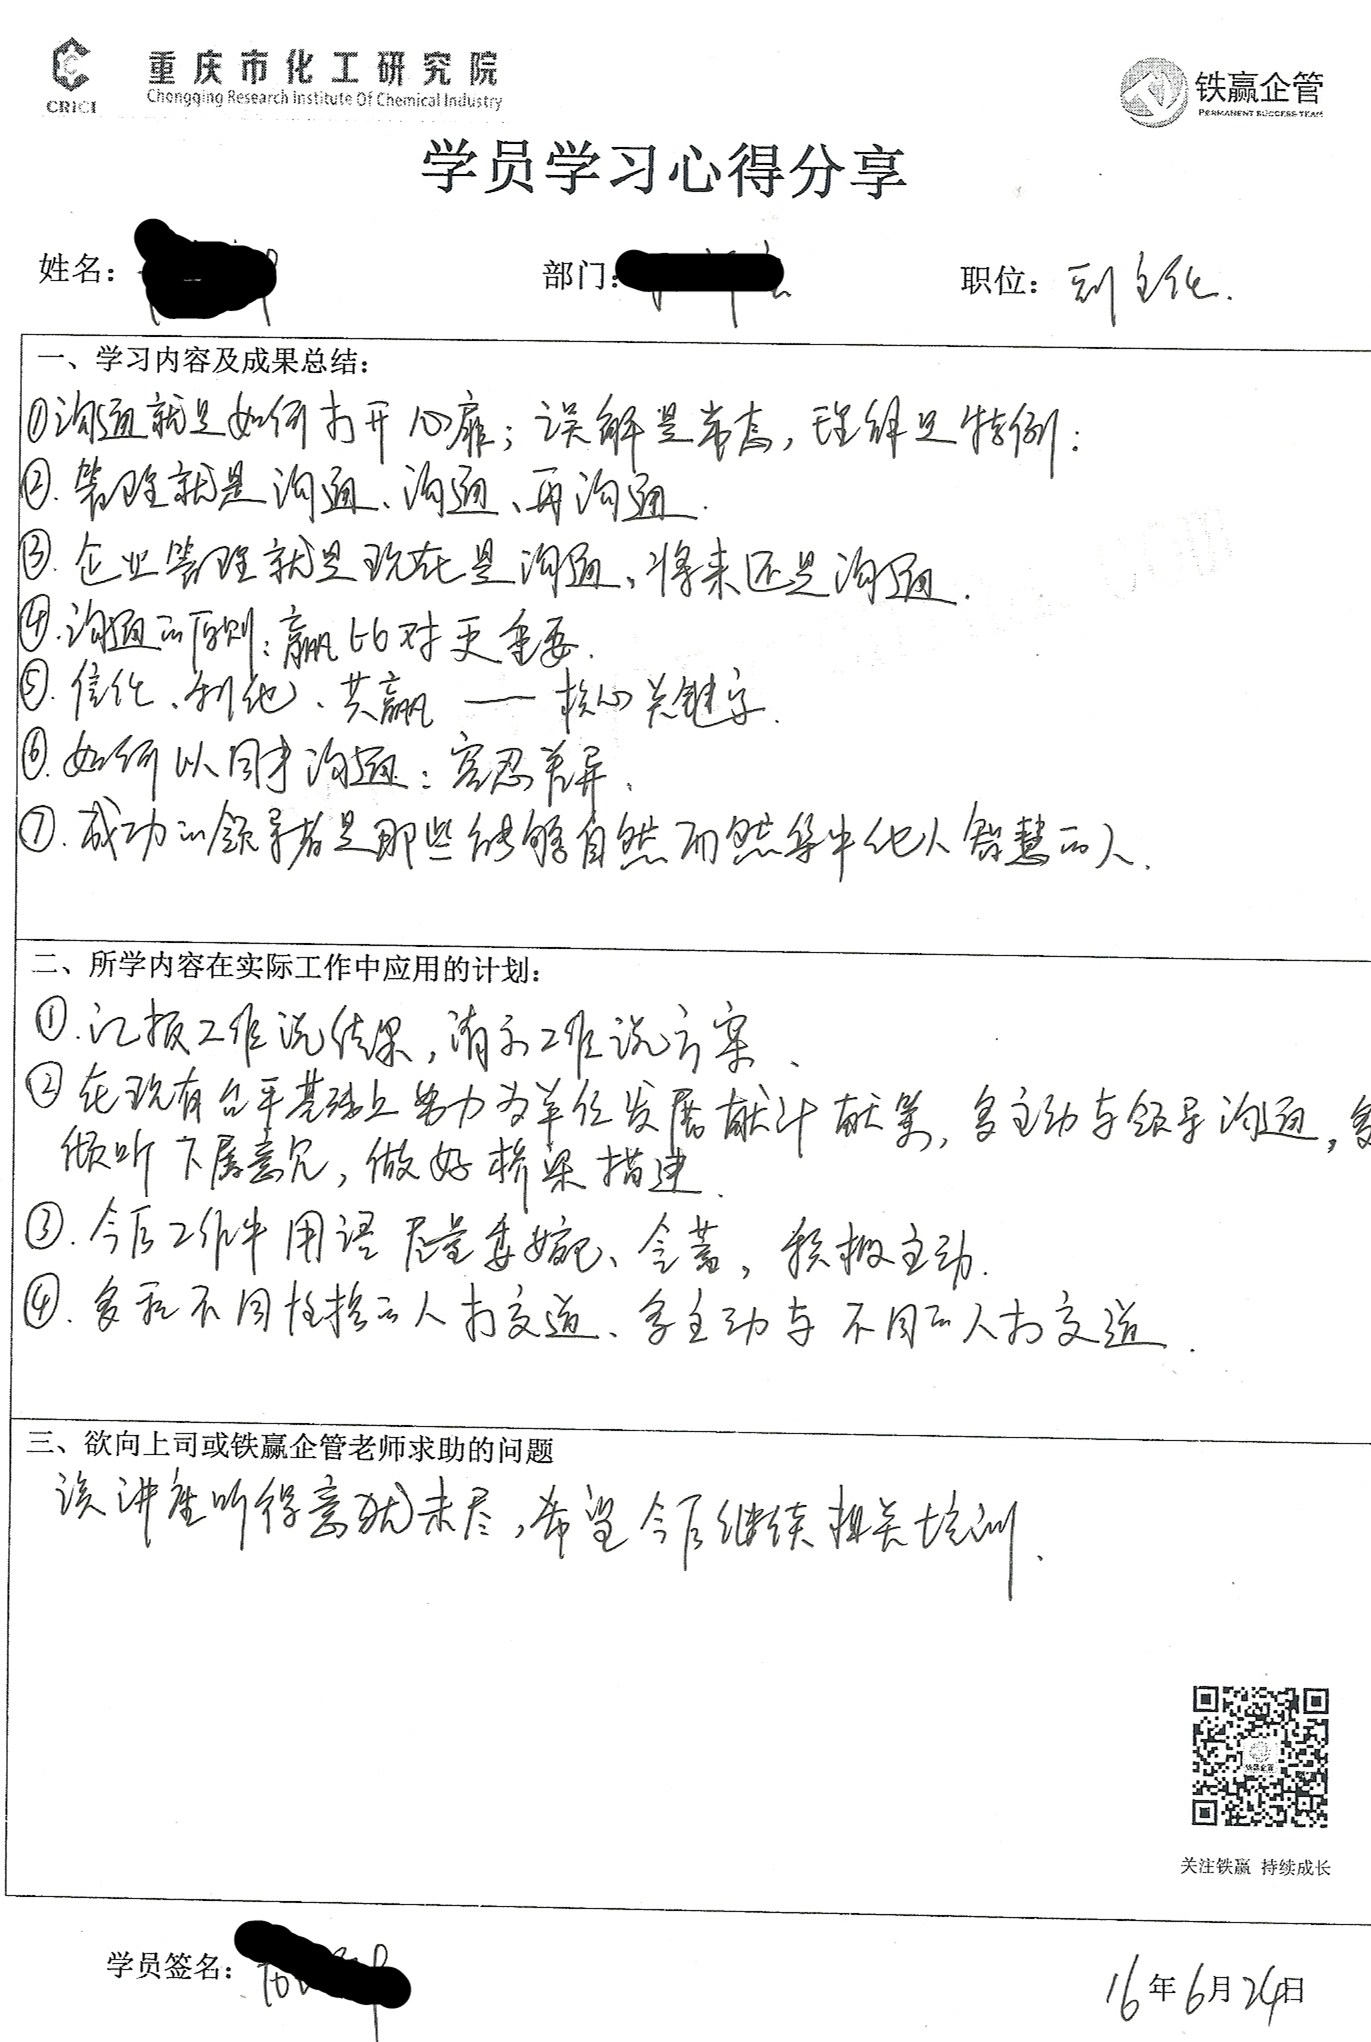 CRICI
重庆市化工研究院
Chongqing Research Institute Of Chemical Industry
铁赢企管
PERMANENT SUCCESS TEAM
学员学习心得分享
姓名： 部门： 职位：副主任.
一、学习内容及成果总结：
①沟通就是如何打开心扉；误解是常态，理解是特例；
②.管理就是沟通、沟通、再沟通.
③.企业管理就是现在是沟通、将来还是沟通.
④.沟通的原则：赢比对更重要.
⑤.信任、利他、共赢 — 核心关键字.
⑥.如何以同事沟通：容忍差异.
⑦.成功的领导者是那些能够自然而然集中他人智慧的人.
二、所学内容在实际工作中应用的计划：
①.汇报工作说结果，请示工作说方案、
②在现有台平基础上努力为单位发展献计献策，多主动与领导沟通，多
倾听下属意见，做好桥梁搭建.
③.今后工作中用语尽量委婉、含蓄，积极主动.
④.多和不同性格的人打交道、多主动与不同的人打交道.
三、欲向上司或铁赢企管老师求助的问题
该讲座听得意犹未尽，希望今后继续相关培训.
铁赢企管
关注铁赢 持续成长
学员签名：
16年6月24日